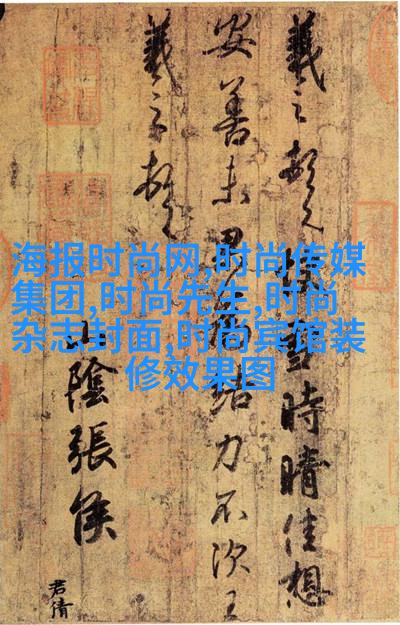 海报时尚网,时尚传媒
集团,时尚先生,时尚
杂志封面,时尚宾馆装
修效果图
羲之頓首快雪時晴佳想
安善未果為結力不次王
羲之頓首
山陰張侯
君倩